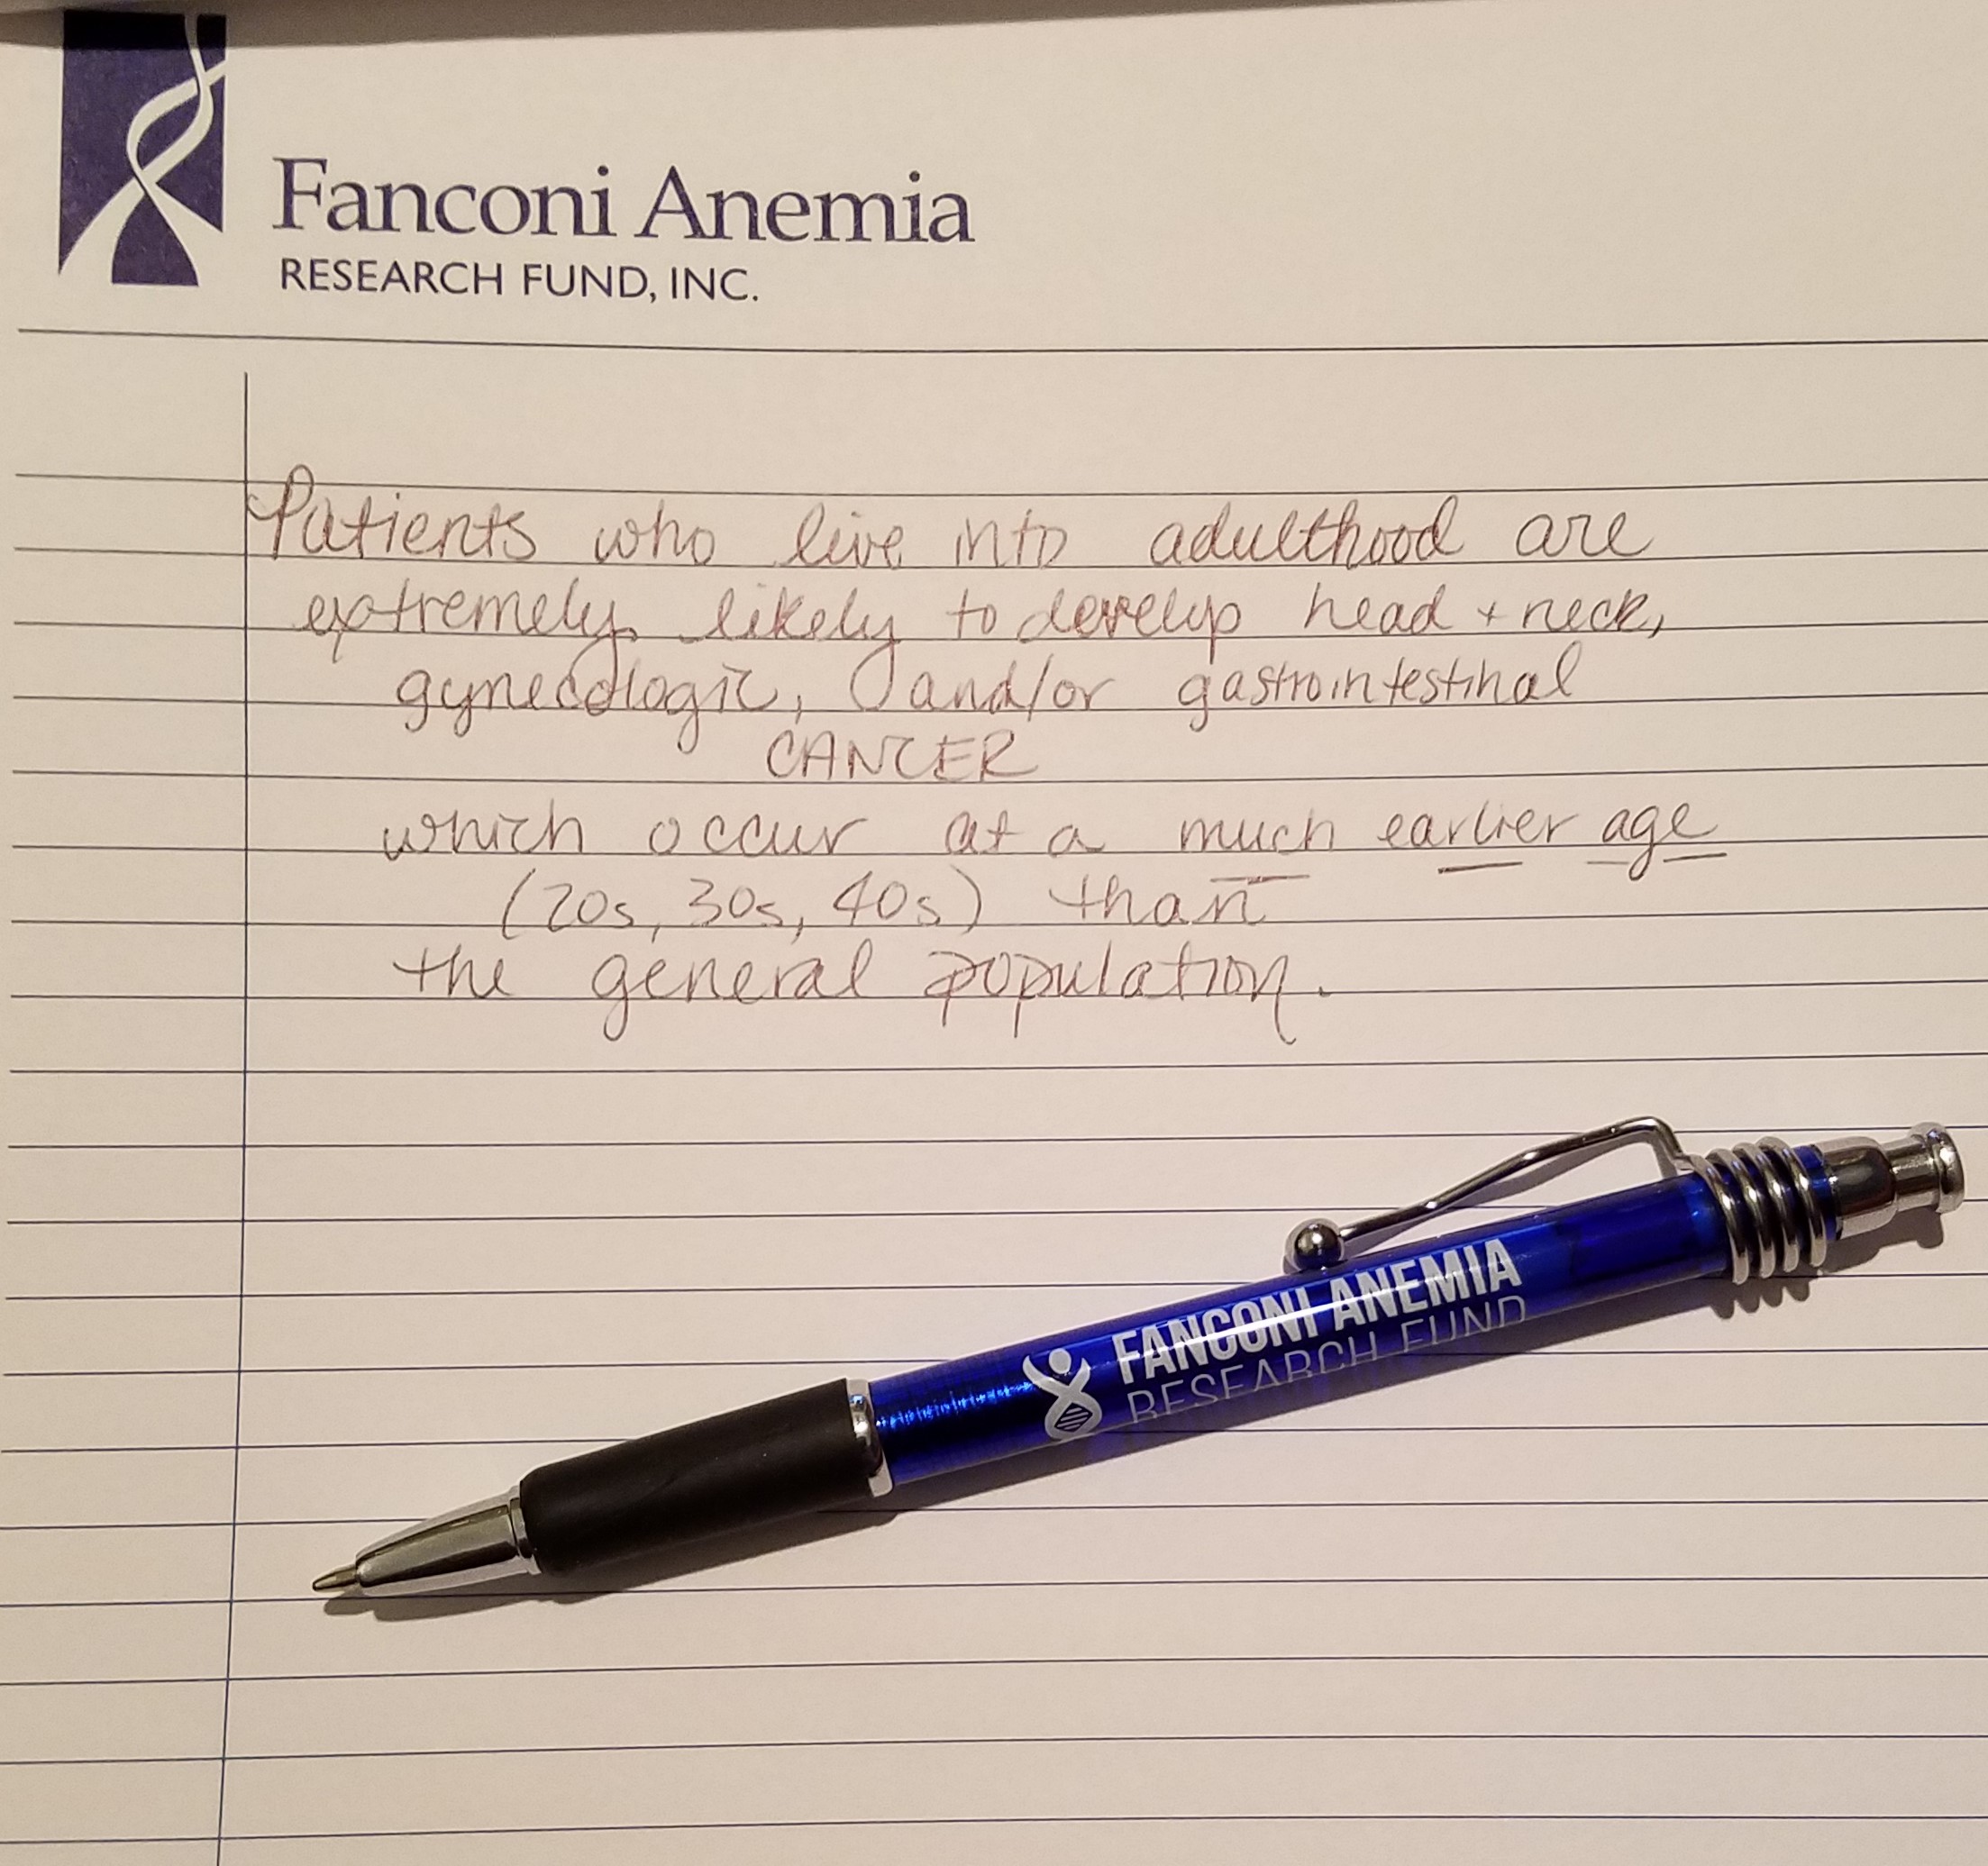 Fanconi Anemia
RESEARCH FUND, INC.
Patients who live into adulthood are
extremely likely to develop head + neck,
gynecologic, and/or gastrointestinal
CANCER
which occur at a much earlier age
(20s, 30s, 40s) than
the general population.
FANCONI ANEMIA
RESEARCH FUND